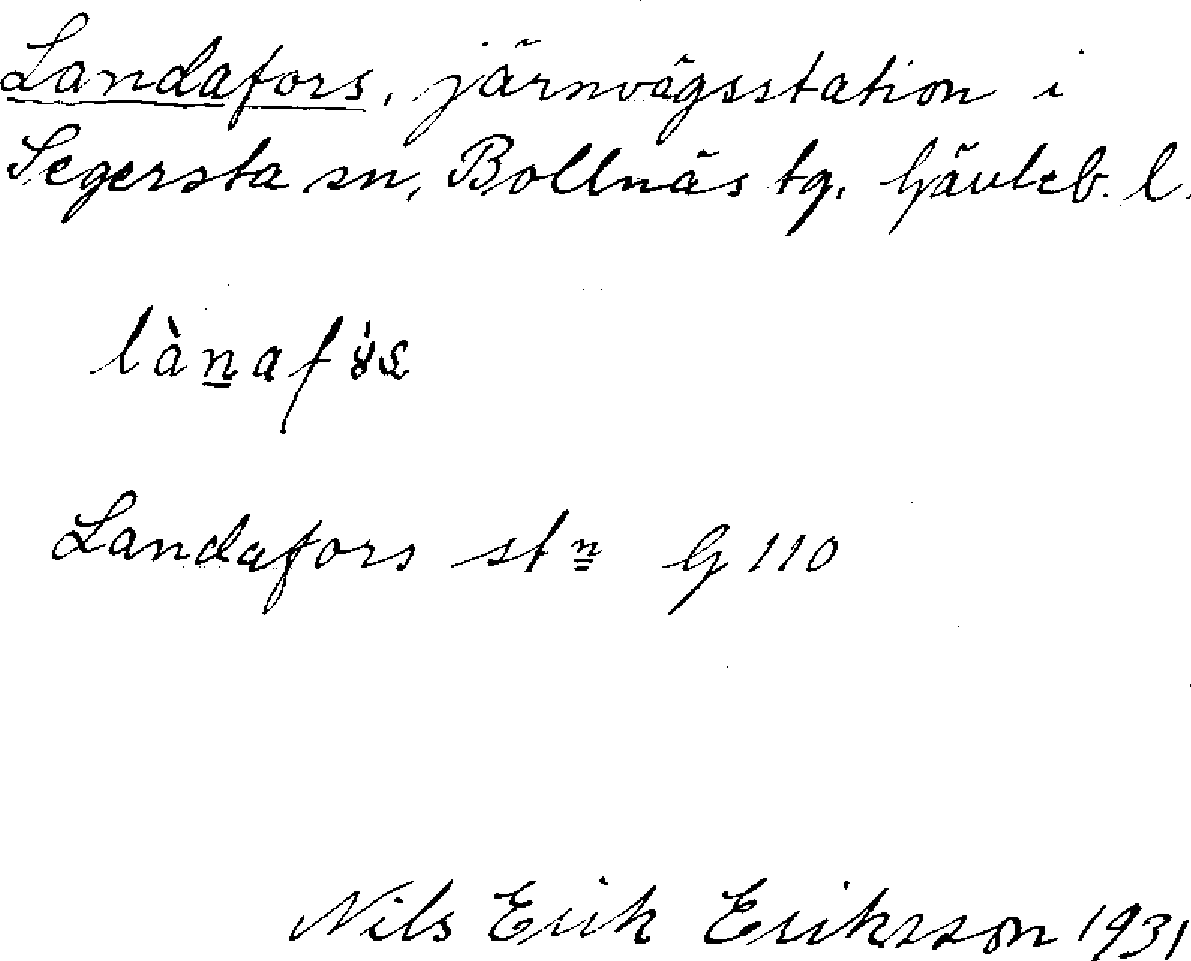 Landafors, järnvägsstation i
Segersta sn, Bollnäs tg. Gävleb. l.
Landafors stn G 110
Nils Erik Eriksson 1931